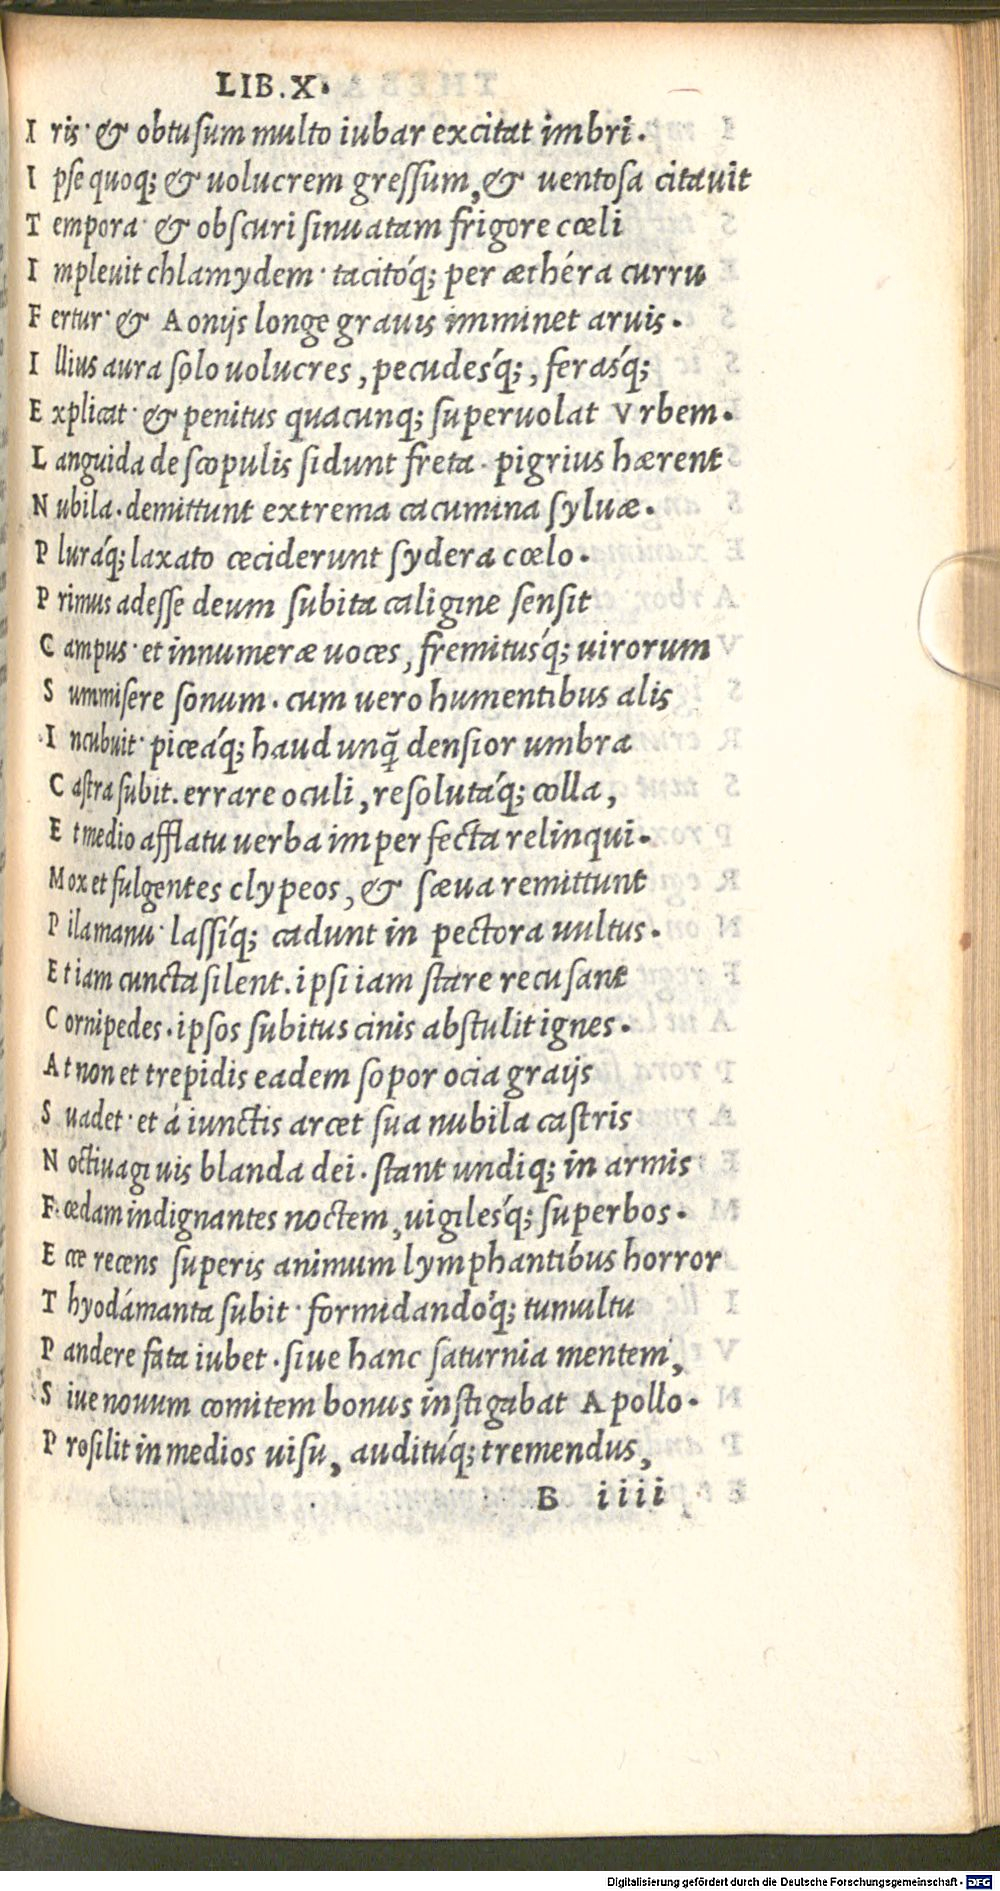 LIB.X.
I ris· & obtusum multo iubar excitat imbri.
I pse quoq; & uolucrem gressum, & uentosa citauit
T empora· & obscuri sinuatam frigore cœli
I mpleuit chlamydem· tacitóq; per æthéra curru
F ertur· & Aonijs longe grauis imminet aruis.
I llius aura solo uolucres, pecudesq́;, ferasq́;
E xplicat· & penitus quacunq; superuolat Vrbem.
L anguida de scopulis sidunt freta· pigrius hærent
N ubila. demittunt extrema cacumina syluæ.
P luráq; laxato ceciderunt sydera cœlo.
P rimus adesse deum subita caligine sensit
C ampus· et innumeræ uoces, fremitusq́; uirorum
S ummisere sonum. cum uero humentibus alis
I ncubuit· piceáq; haud unq̃ densior umbra
C astra subit. errare oculi, resolutáq; colla,
E t medio afflatu uerba imperfecta relinqui.
M ox et fulgentes clypeos, & sæua remittunt
P ila manu· lassíq; cadunt in pectora uultus.
E t iam cuncta silent. ipsi iam stare recusant
C ornipedes. ipsos subitus cinis abstulit ignes.
A t non et trepidis eadem sopor ocia graijs
S uadet· et á iunctis arcet sua nubila castris
N octiuagi uis blanda dei. stant undiq; in armis
F œdam indignantes noctem, uigilesq́; superbos.
E cce recens superis animum lymphantibus horror
T hyodámanta subit· formidandóq; tumultu
P andere fata iubet. siue hanc saturnia mentem,
S iue nouum comitem bonus instigabat Apollo.
P rosilit in medios uisu, auditúq; tremendus,
B iiii
Digitalisierung gefördert durch die Deutsche Forschungsgemeinschaft - DFG